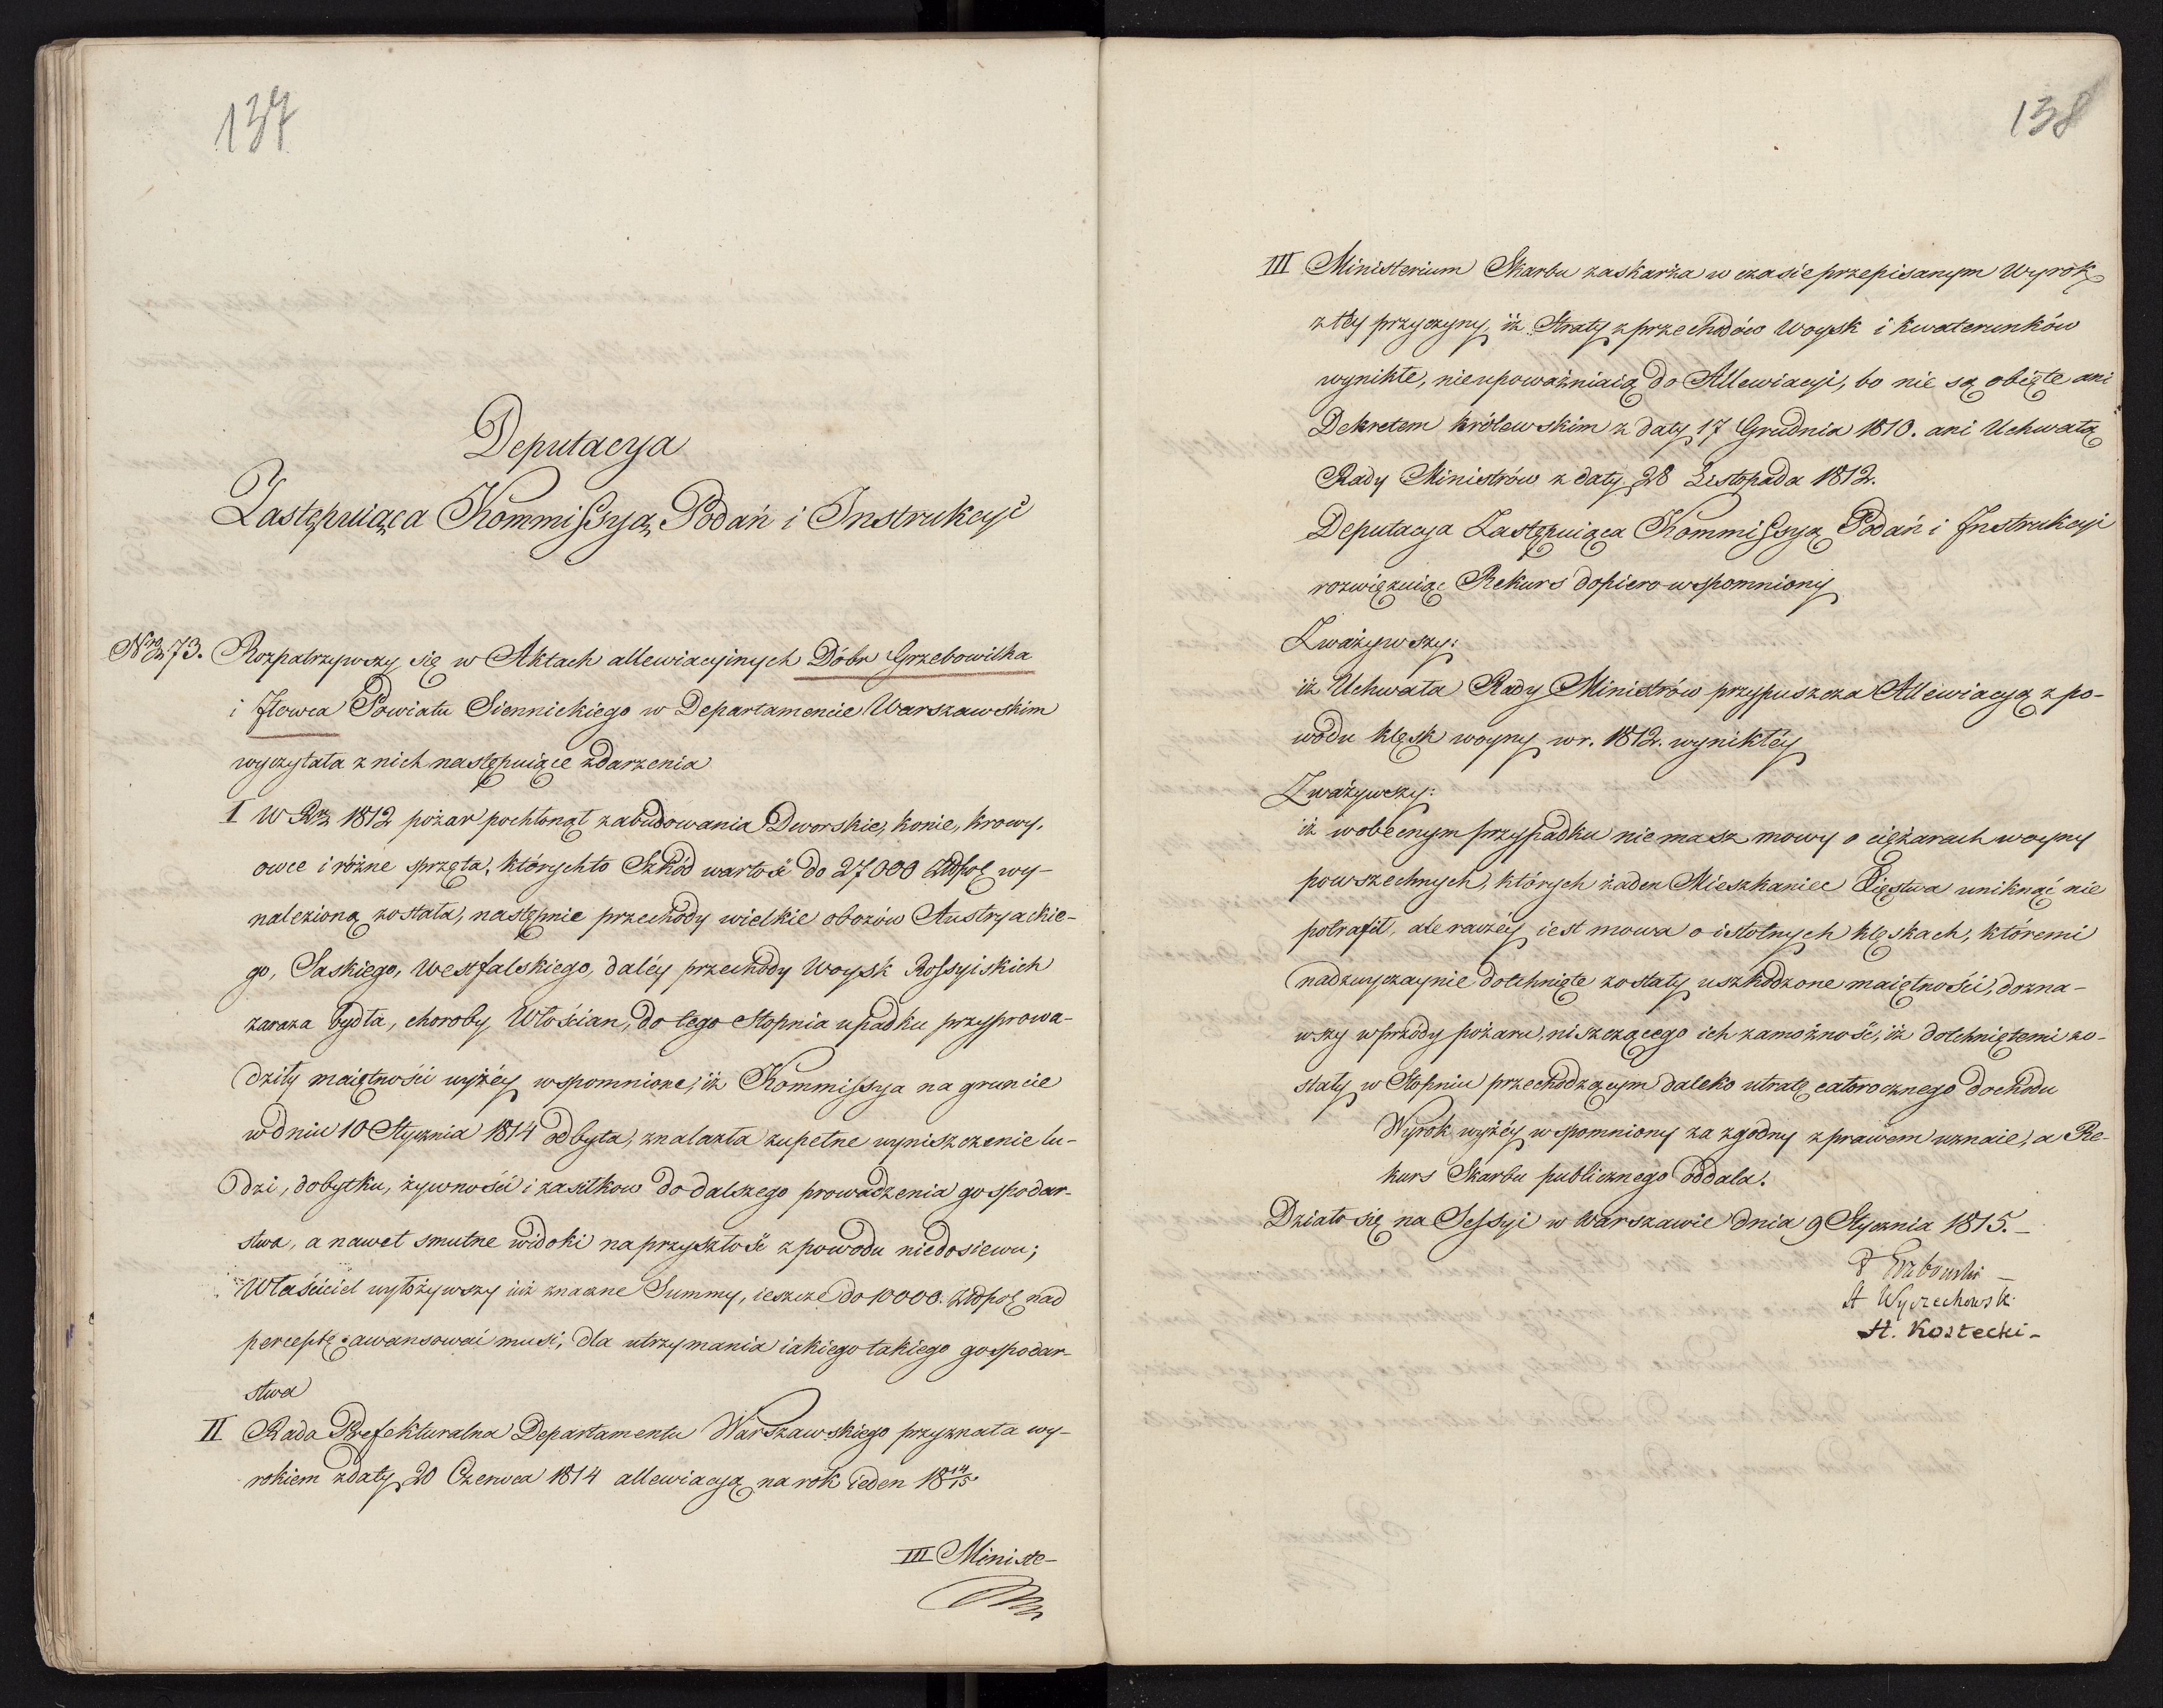 137
Deputacya
Zastępuiąca Kommissyą Podań i Instrukcyi
Nro 73. Rozpatrzywszy się w Aktach allewiacyinych Dóbr Grzebowilka
i Iłowca Powiatu Siennickiego w Departamencie Warszawskim
wyczytała z nich następuiące zdarzenia
I W Rz 1812 pożar pochłonął zabudowania Dworskie, konie, krowy,
owce i różne sprzęta, których to Szkód wartość do 27000 Złłpol wy-
nalezioną została, następnie przechody wielkie obozów Austryackie-
go, Saskiego, Westfalskiego, daléy przechody Woysk Rossyiskich
zaraza bydła, choroby Włościan, do tego Stopnia upadku przyprowa-
dziły maiętności wyżéy wspomnione, iż Kommissya na gruncie
w dniu 10 Stycznia 1814 odbyta, znalazła zupełne wyniszczenie lu-
dzi, dobytku, żywności i zasiłkow do dalszego prowadzenia gospodar-
stwa, a nawet smutne widoki na przyszłość z powodu niedosiewu;
Właściciel wyłożywszy iuż znaczne Summy, ieszcze do 10000. Złłpol nad
perceptę awansować musi, dla utrzymania iakiego takiego gospodar-
stwa
II Rada Prefekturalna Departamentu Warszawskiego przyznała wy-
rokiem z daty 20 Czerwca 1814 allewiacyą na rok ieden 18 14/15.
III Ministe-
138
III Ministerium Skarbu zaskarża w czasie przepisanym Wyrok
z téy przyczyny, iż Straty z przechodów Woysk i kwaterunków
wynikłe, nieupoważniaią do Allewiacyi, bo nie są obięte ani
Dekretem królewskim z daty 17 Grudnia 1810. ani Uchwałą
Rady Ministrów z daty 28 Listopada 1812.
Deputacya Zastępuiąca Kommissyą Podań i Instrukcyi
rozwięzuiąc Rekurs dopiero wspomniony
Zważywszy:
iż Uchwała Rady Ministrów przypuszcza Allewiacyą z po-
wodu klęsk woyny w r. 1812. wynikłéy
Zważywszy:
iż w obecnym przypadku nie masz mowy o ciężarach woyny
powszechnych, których żaden Mieszkaniec Xięstwa uniknąć nie
potrafił, ale raczéy iest mowa o istotnych klęskach, któremi
nadzwyczaynie dotchnięte zostały uszkodzone maiętności, dozna-
wszy wprzódy pożaru, niszczącego ich zamożność, iż dotchniętemi zo-
stały w Stopniu przechodzącym daleko utratę całorocznego dochodu
Wyrok wyżéy wspomniony za zgodny z prawem uznaie, a Re-
kurs Skarbu publicznego oddala.
Działo się na Sessyi w Warszawie dnia 9 Stycznia 1815.
A Wyczechowski
A. Kostecki